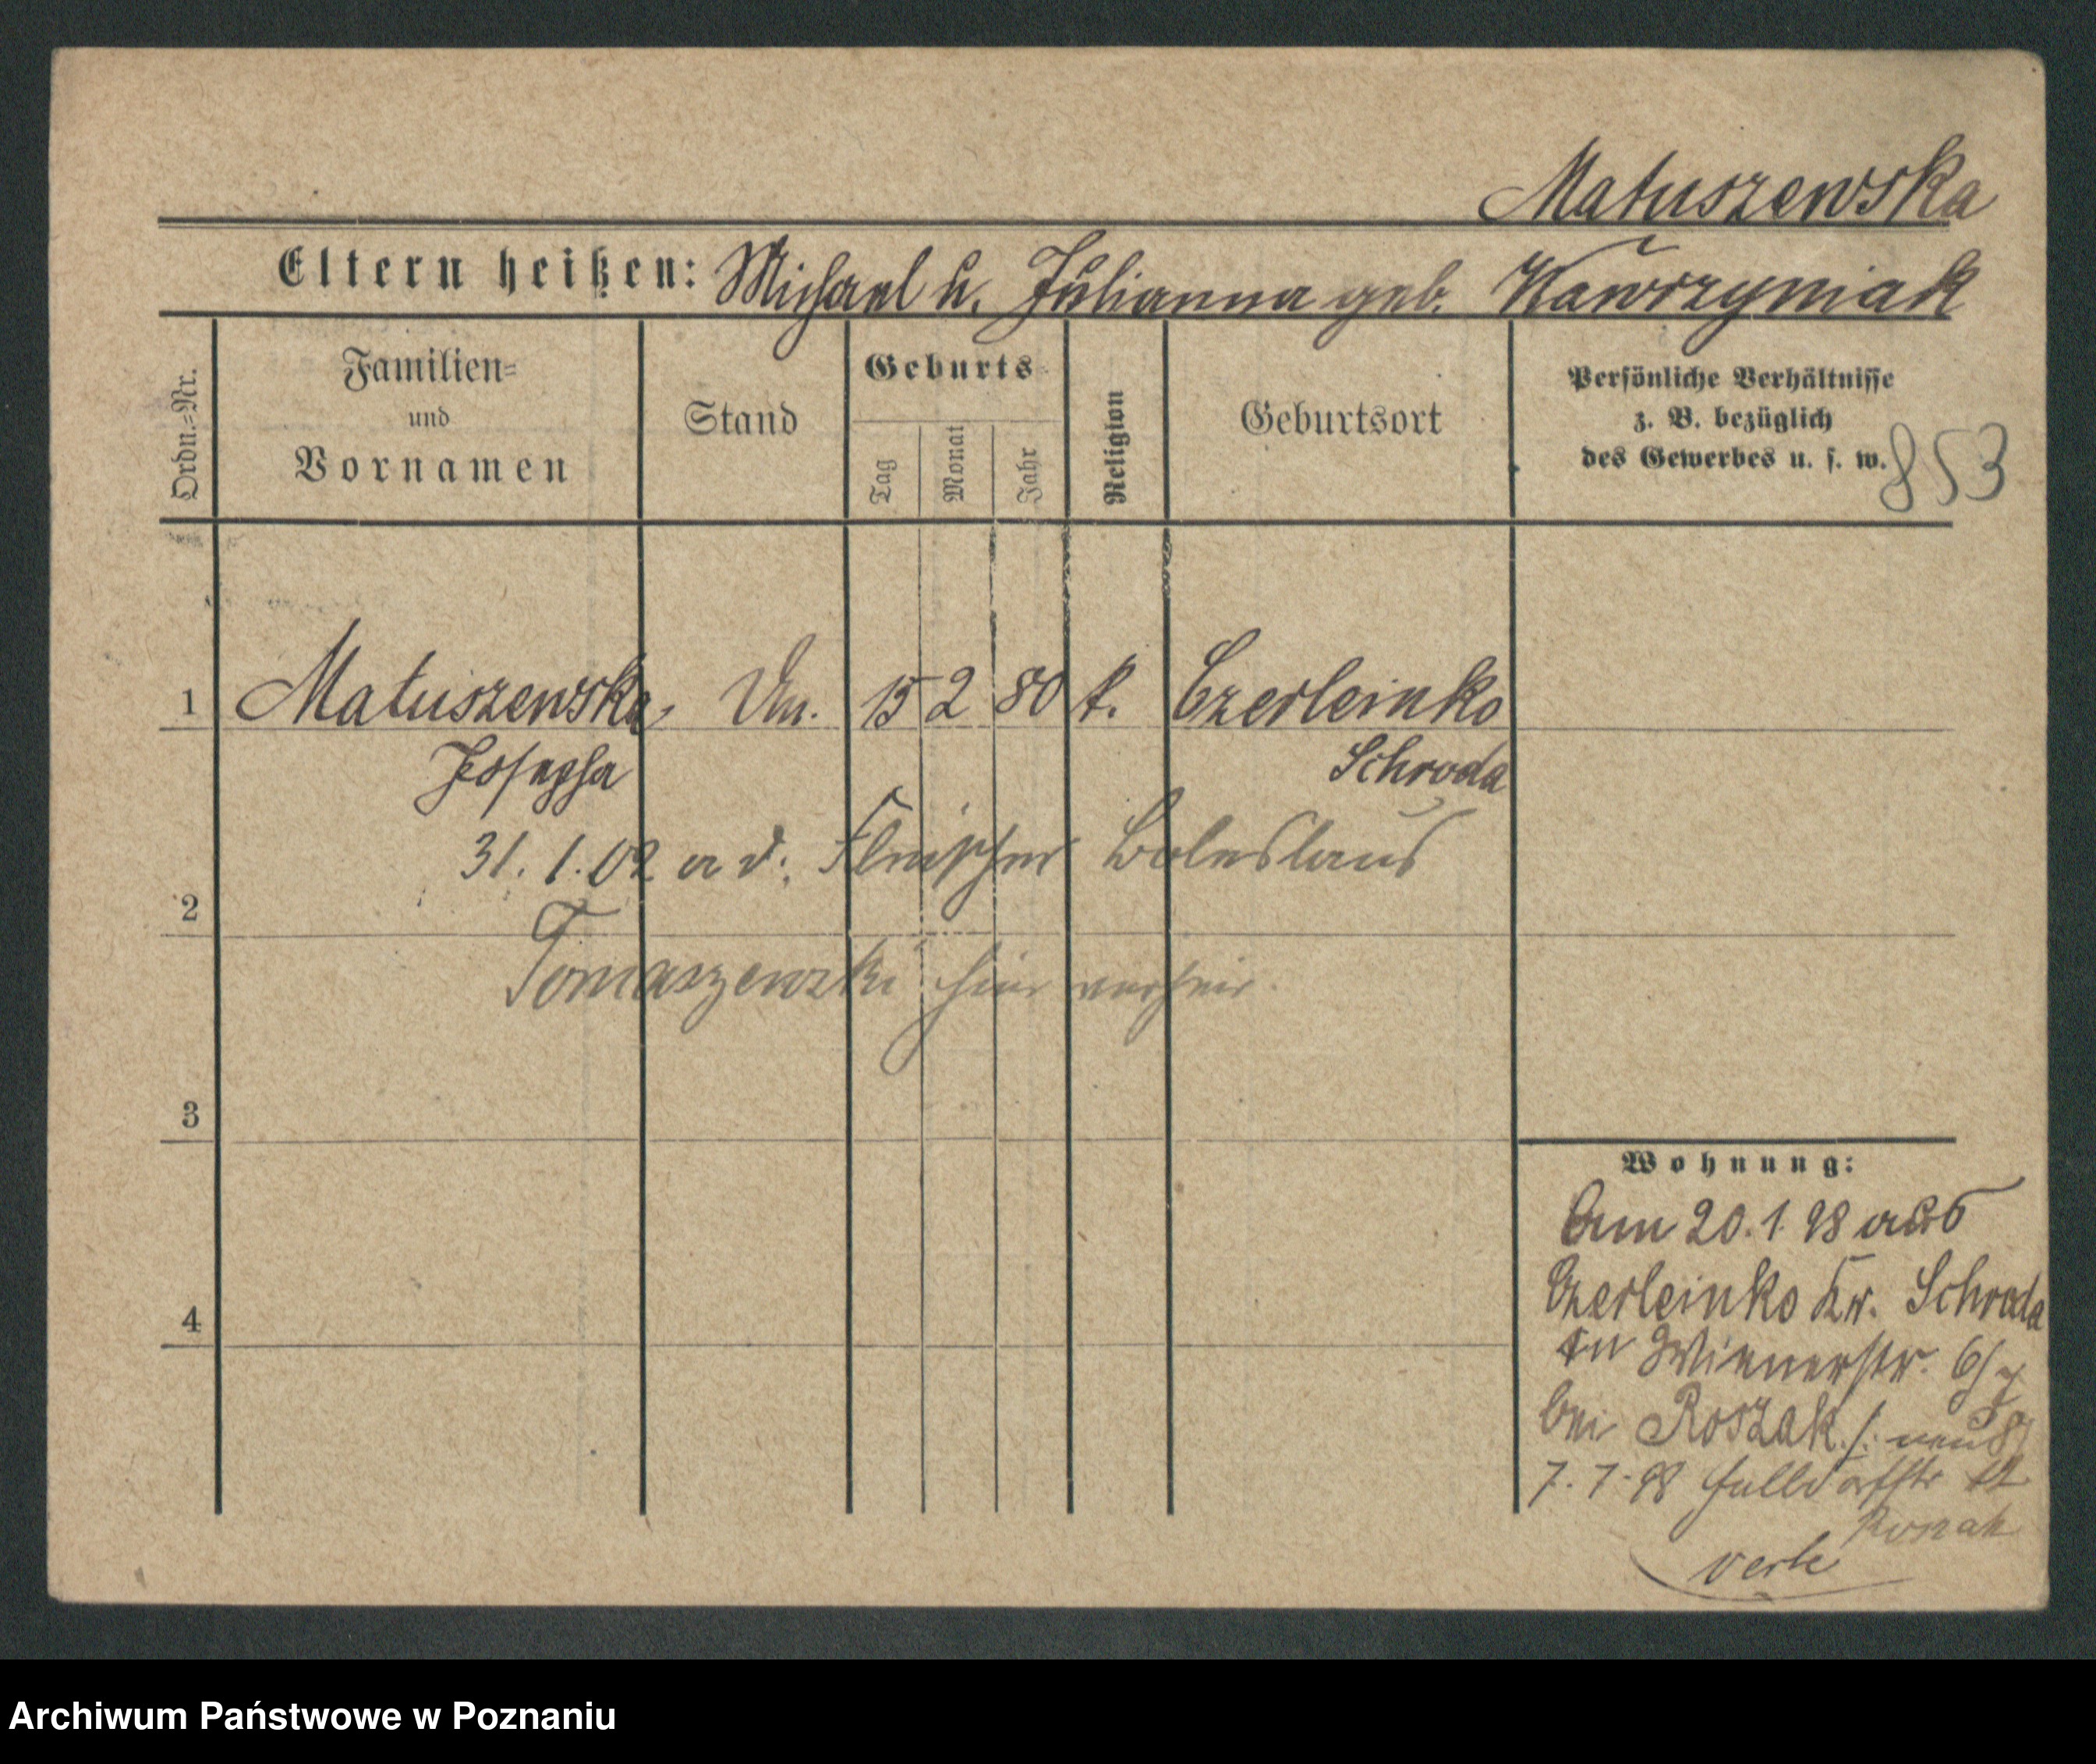 Matuszewska
Eltern heißen: Michael u. Julianna geb. Wawrzyniak
Ordn.=Nr.
Familien=
und
Vornamen
Stand
Geburts
Tag
Monat
Jahr
Religion
Geburtsort
Persönliche Verhältnisse
z. B. bezüglich
des Gewerbes u. s. w.
853
1 Matuszewska, 15 2 80 k. Czerleinko
Josepha Schroda
31.1.02 a d. Fleischer Boleslaus
2
Tomaszewski hier verheir.
3
4
Wohnung:
Am 20.1.98 aus
Czerleinko Kr. Schroda
in Wienerstr. 6/7
bei Roszak
7.7.98
verh
Archiwum Państwowe w Poznaniu